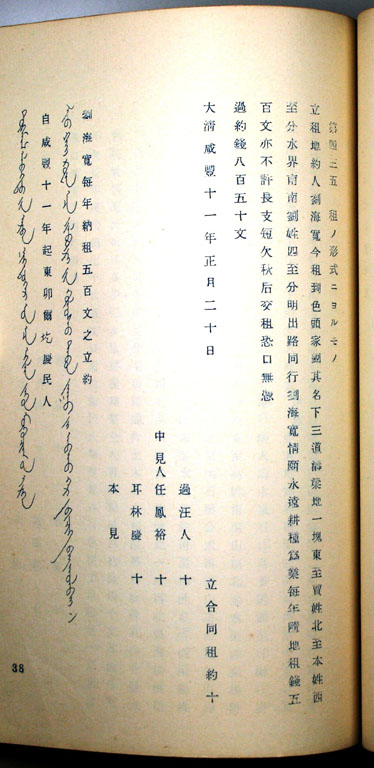 第四三五　租ノ形式ニヨルモノ
立租地約人劉海寬今租到色頭家國其名下三道溝柴地一塊東至賈姓北至本姓西
至分水界南南劉姓四至分明出路同行劉海寬情願永遠耕種爲業每年隨地租錢五
百文亦不許長支短欠秋后交租恐口無憑
過約錢八百五十文
大清咸豐十一年正月二十日
立合同租約十
過汪人　十
中見人任鳳裕　十
耳林慶　十
本見
劉海寬每年納租五百文之立約
自咸豐十一年起東卯爾圪慶民人
38